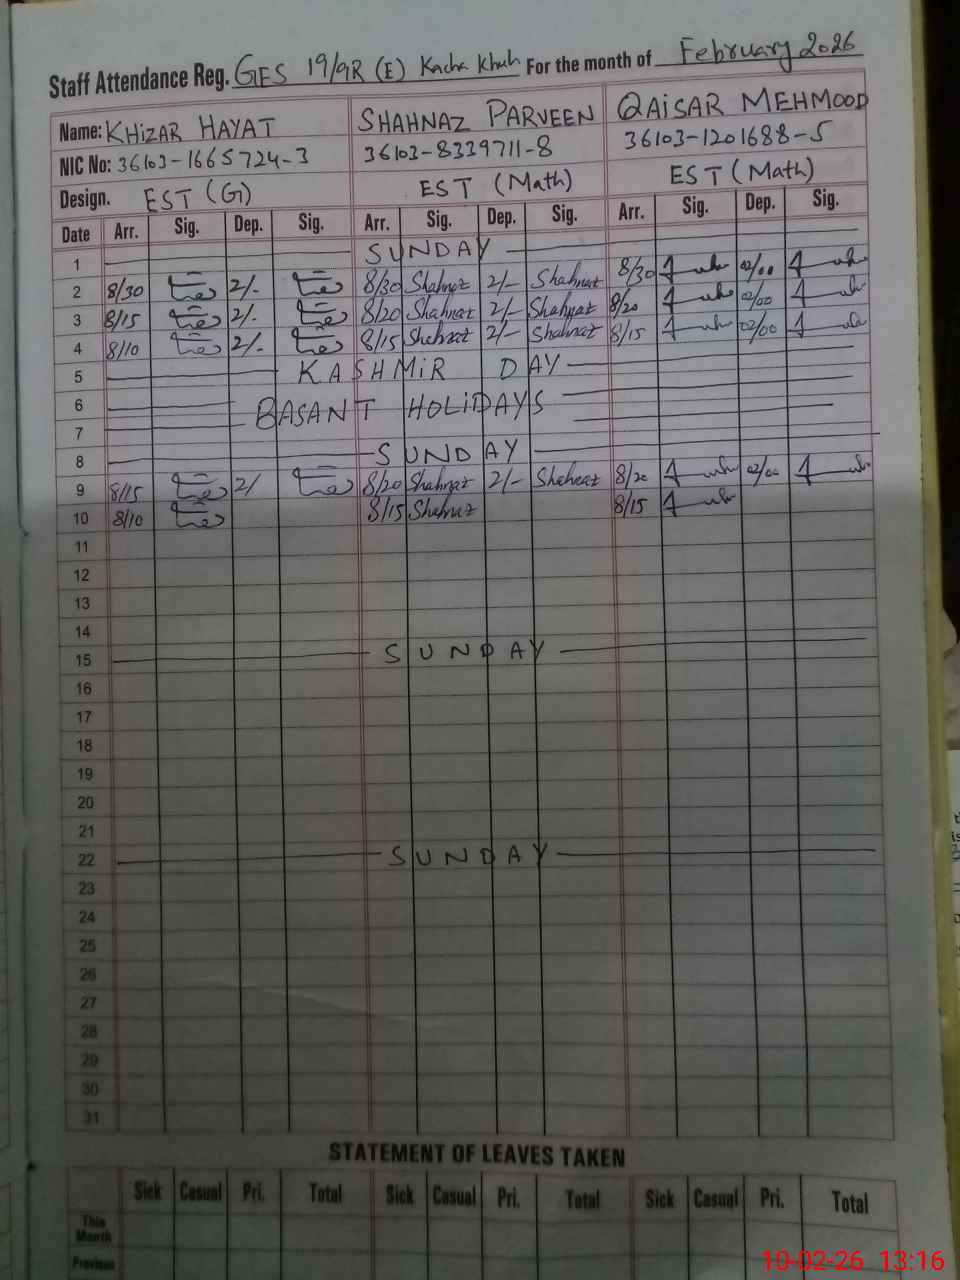 Staff Attendance Reg. GES 19/9R (E) Kacha Khuh For the month of February 2026
Name: KHIZAR HAYAT SHAHNAZ PARVEEN QAISAR MEHMOOD
NIC No: 36103-1665724-3 36103-8339711-8 36103-1201688-5
Design. EST (G) EST (Math) EST (Math)
Date Arr. Sig. Dep. Sig. Arr. Sig. Dep. Sig. Arr. Sig. Dep. Sig.
1 SUNDAY
2 8/30 2/- 8/30 Shahnaz 2/- Shahnaz 8/30 02/00
3 8/15 2/- 8/20 Shahnaz 2/- Shahnaz 8/20 02/00
4 8/10 2/- 8/15 Shahnaz 2/- Shahnaz 8/15 02/00
5 KASHMIR DAY
6 BASANT HOLIDAYS
7
8 SUNDAY
9 8/15 2/ 8/20 Shahnaz 2/- Shahnaz 8/20 02/00
10 8/10 8/15 Shahnaz 8/15
11
12
13
14
15 SUNDAY
16
17
18
19
20
21
22 SUNDAY
23
24
25
26
27
28
29
30
31
STATEMENT OF LEAVES TAKEN
Sick Casual Pri. Total Sick Casual Pri. Total Sick Casual Pri. Total
This Month
Previous
10-02-26 13:16